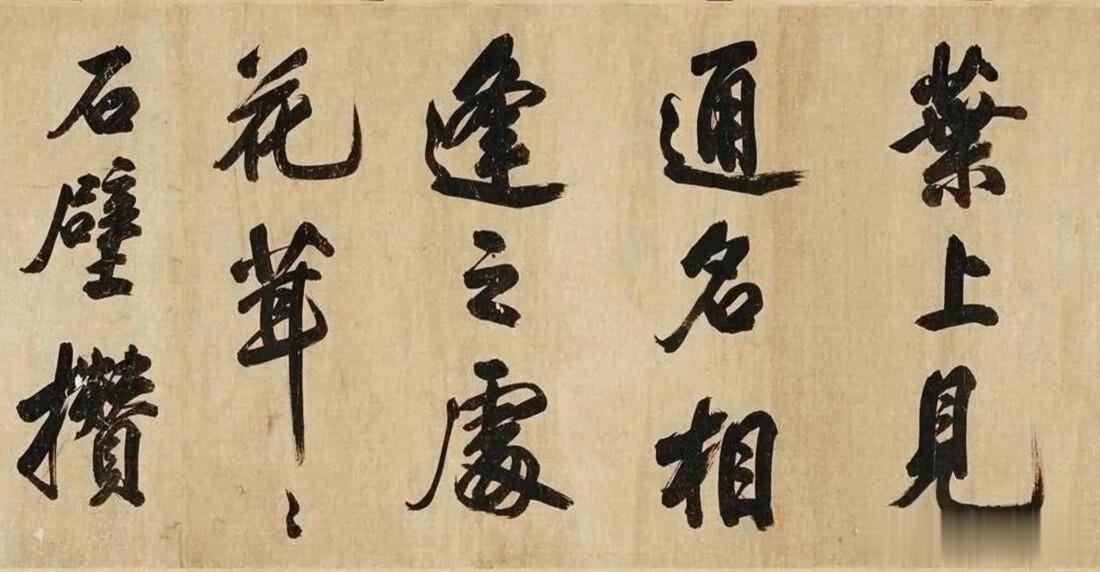 葉上見
通名相
逢之處
花茸〻
石壁攢